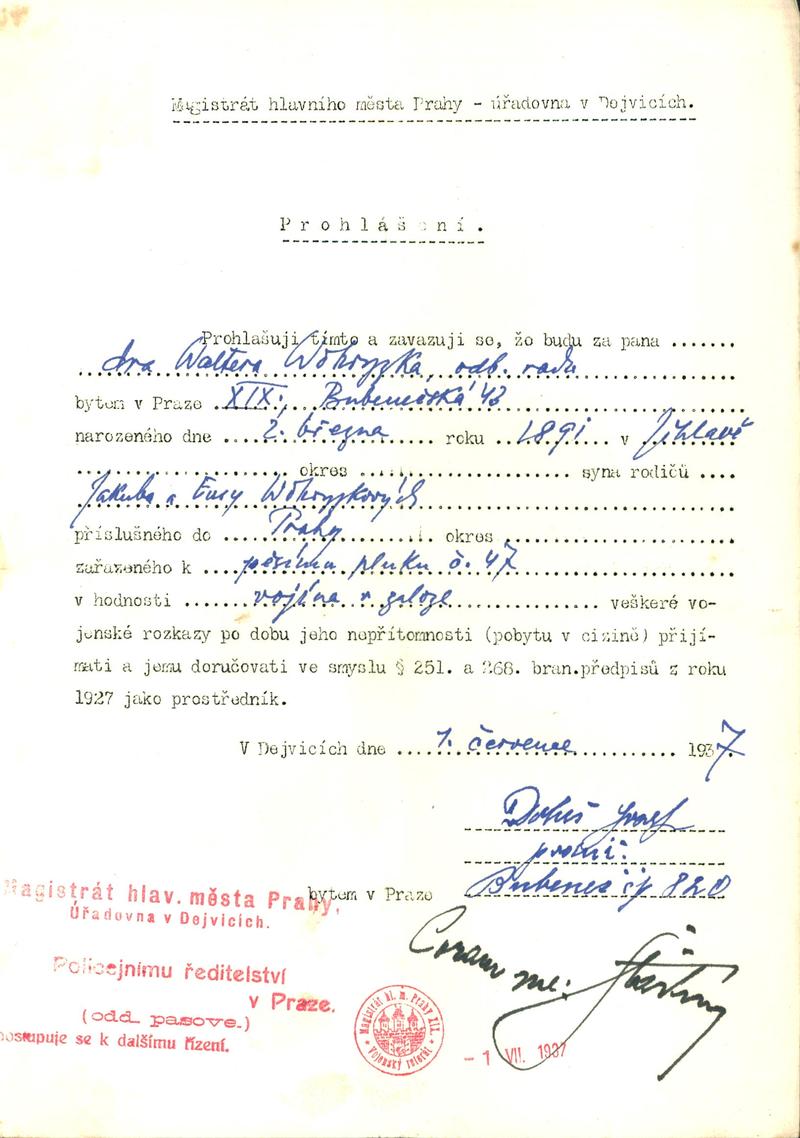 Magistrát hlavního města Prahy - úřadovna v Dejvicích.
Prohlášení.
Prohlašuji tímto a zavazuji se, že budu za pana .......
dra Waltera Wohryzka, odb. radu
bytem v Praze XIX., Bubenečská 43
narozeného dne .... 2. března ...... roku .. 1891 ... v Jihlavě
................ okres ................ syna rodičů ....
Jakuba a Evy Wohryzkových
příslušného do ..... Prahy ......... okres .................
zařazeného k .... pěšímu pluku č. 47
v hodnosti ...... vojína v záloze ............ veškeré vo-
jenské rozkazy po dobu jeho nepřítomnosti (pobytu v cizině) přijí-
mati a jemu doručovati ve smyslu § 251. a 268. bran.předpisů z roku
1927 jako prostředník.
V Dejvicích dne .... 1. července ........... 1937.
Josef
bytem v Praze Bubeneč čp 820
Coram me:
Magistrát hlav. města Prahy,
Úřadovna v Dejvicích.
Policejnímu ředitelství
v Praze.
(odd. pasové.)
postupuje se k dalšímu řízení.
Magistrát hl. m. Prahy XIX.
Vojenský referát
- 1 VII. 1937